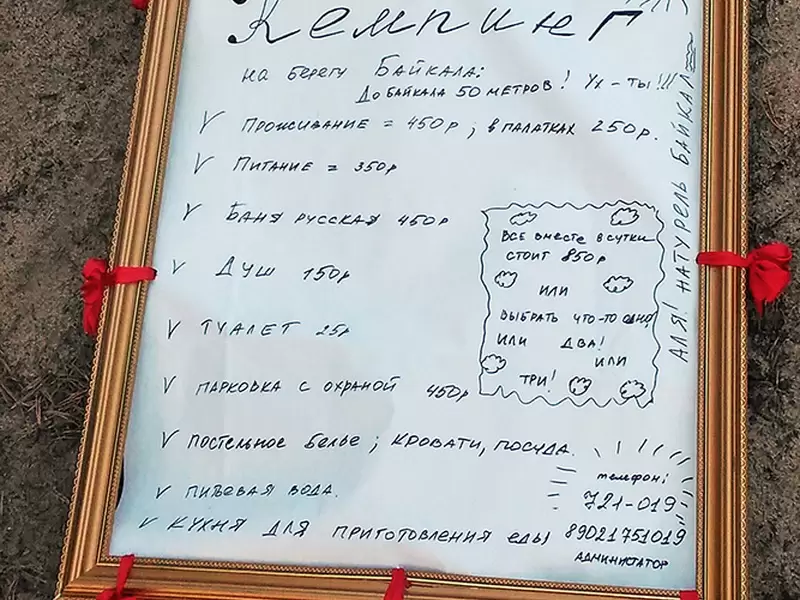 Кемпинг
на берегу Байкала:
До Байкала 50 метров! Ух-ты!!!
V Проживание = 450р; в палатках 250р.
V Питание = 350р
V Баня русская 450р
V Душ 150р
V Туалет 25р
V парковка с охраной 450р
V постельное белье; кровати, посуда.
V питьевая вода.
V кухня для приготовления еды
Все вместе в сутки
стоит 850р
или
выбрать что-то одно!
или два!
или
три!
Аля! натурель Байкал
телефон:
721-019
89021751019
администратор